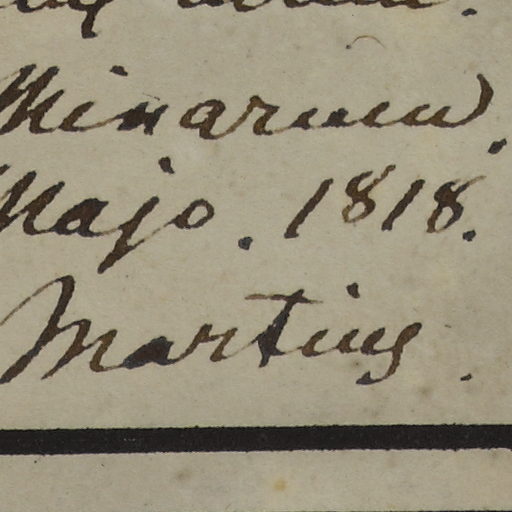 Minarum.
Majo. 1818.
Martius.